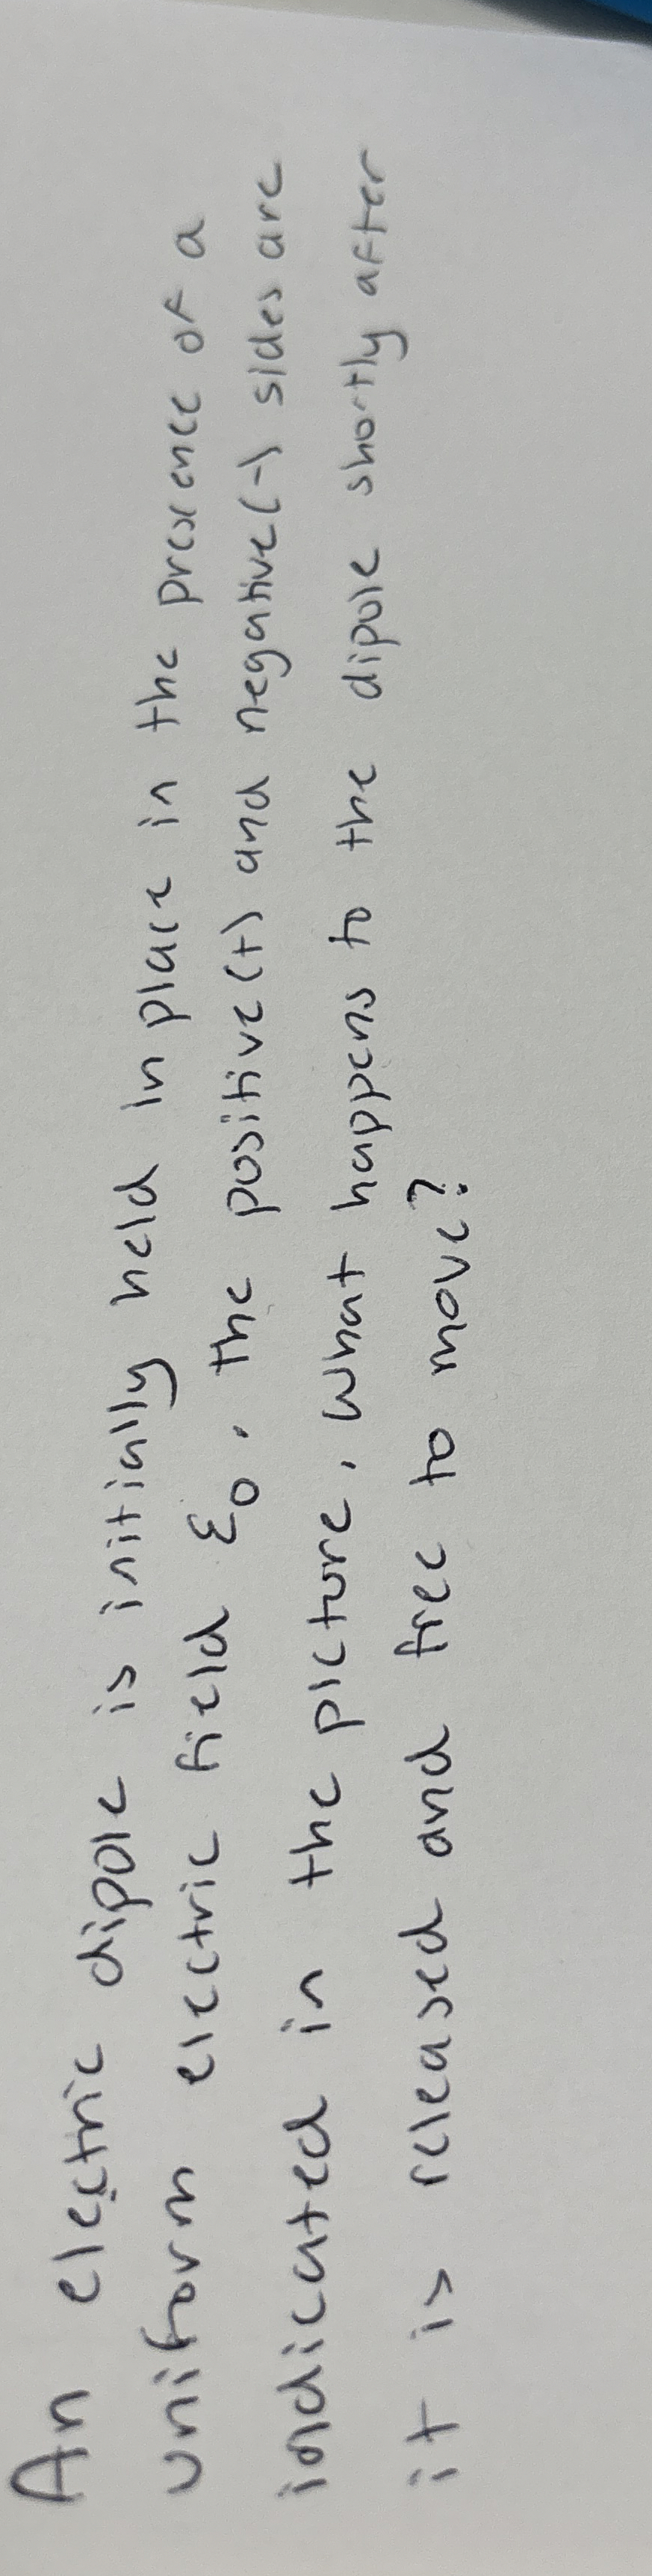 An electric dipole is initially held in place in the presence of a
uniform electric field ε₀. the positive(+) and negative(-) sides are
indicated in the picture. what happens to the dipole shortly after
it is released and free to move?